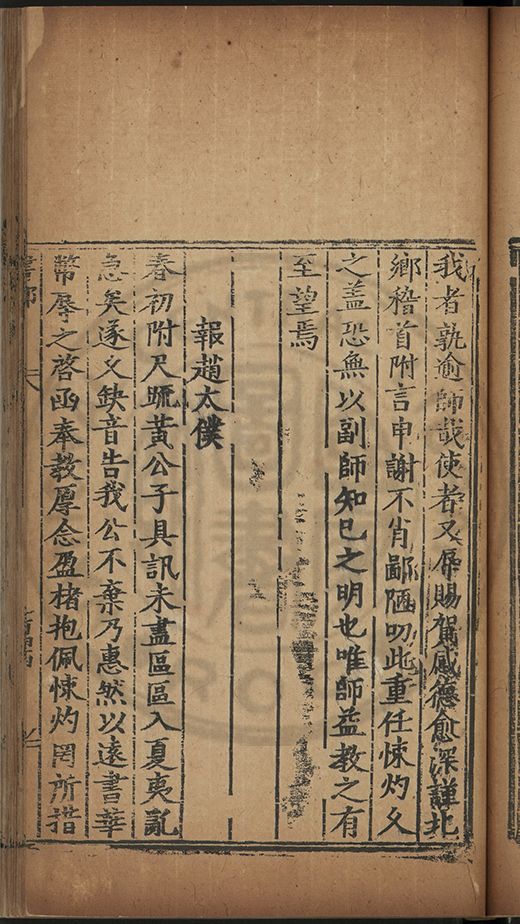 我者孰逾師哉使者又辱賜賀感德愈深謹北
鄉稽首附言申謝不肖鄙陋叨此重任悚灼久
之蓋恐無以副師知己之明也唯師益教之有
至望焉
報趙太僕
春初附尺疏黃公子具訊未盡區區入夏夷亂
急矣遂文缺音告我公不棄乃惠然以遠書華
幣辱之啓函奉教厚念盈楮抱佩悚灼罔所措